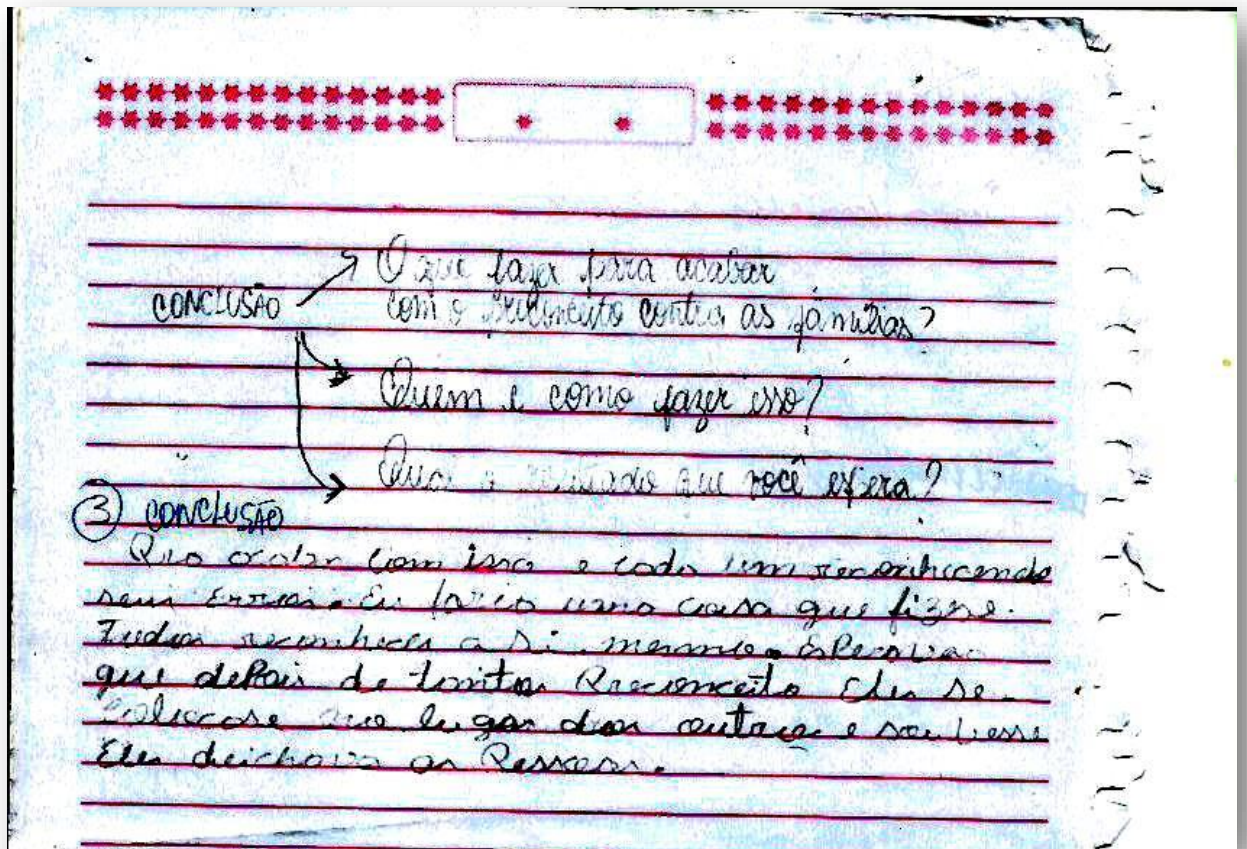 O que fazer para acabar
CONCLUSÃO com o preconceito contra as famílias?
Quem e como fazer isso?
Qual o resultado que você espera?
3 CONCLUSÃO
com isso e cada um reconhecendo
seus erros. Eu uma coisa que fizese
Todos reconhecer a si mesmo.
que depois de tantos Preconceito Eles se
colocase no lugar dos outros e soubesse
Eles deichava as Pessoas.